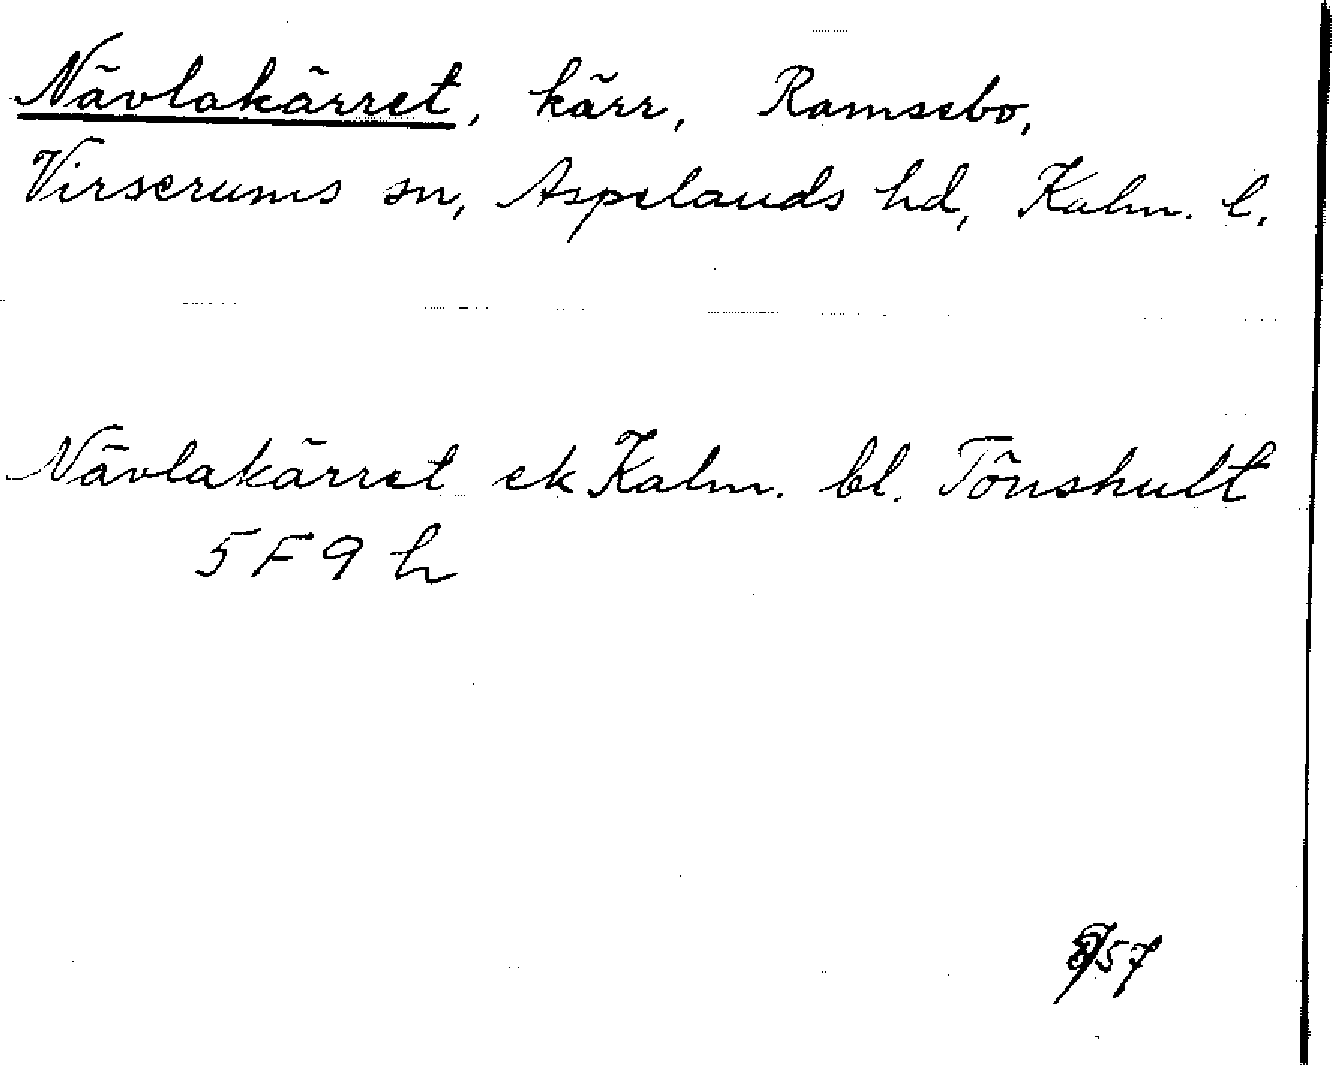 Nävlakärret, kärr, Ramsebo,
Virserums sn, Aspelands hd, Kalm. l.
Nävlakärret ek Kalm. bl. Tönshult
5F9h